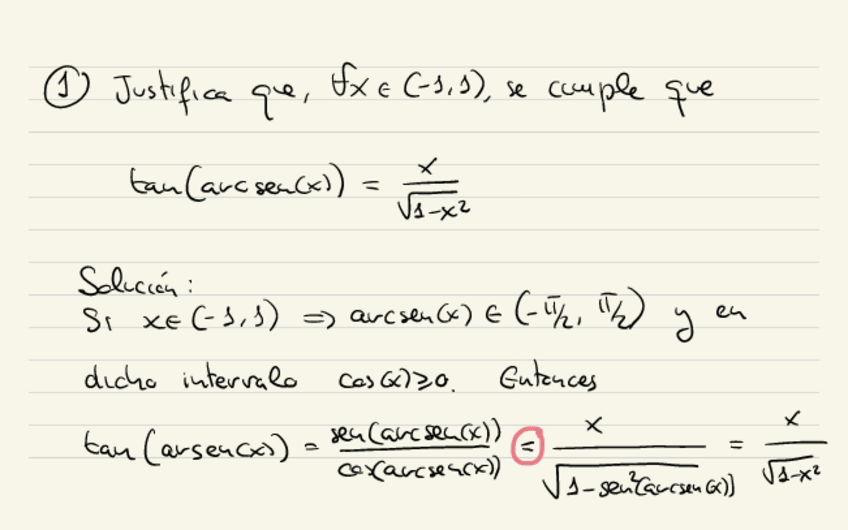 ① Justifica que, ∀x ∈ (-1,1), se cumple que
tan(arcsen(x)) = x/√(1-x²)
Solución:
Si x∈(-1,1) ⇒ arcsen(x) ∈ (-π/2, π/2) y en
dicho intervalo cos(x)≥0. Entonces
tan(arsen(x)) = sen(arcsen(x))/cos(arcsen(x)) = x/√(1-sen²(arcsen(x))) = x/√(1-x²)